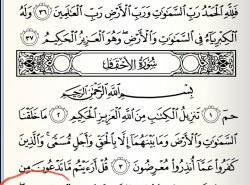 فَلِلَّهِ الْحَمْدُ رَبِّ السَّمَاوَاتِ وَرَبِّ الْأَرْضِ رَبِّ الْعَالَمِينَ ٣٦ وَلَهُ
الْكِبْرِيَاءُ فِي السَّمَاوَاتِ وَالْأَرْضِ وَهُوَ الْعَزِيزُ الْحَكِيمُ ٣٧
سُورَةُ الْأَحْقَافِ
بِسْمِ اللَّهِ الرَّحْمَٰنِ الرَّحِيمِ
حم ١ تَنزِيلُ الْكِتَابِ مِنَ اللَّهِ الْعَزِيزِ الْحَكِيمِ ٢ مَا خَلَقْنَا
السَّمَاوَاتِ وَالْأَرْضَ وَمَا بَيْنَهُمَا إِلَّا بِالْحَقِّ وَأَجَلٍ مُّسَمًّى وَالَّذِينَ
كَفَرُوا عَمَّا أُنذِرُوا مُعْرِضُونَ ٣ قُلْ أَرَأَيْتُم مَّا تَدْعُونَ مِن